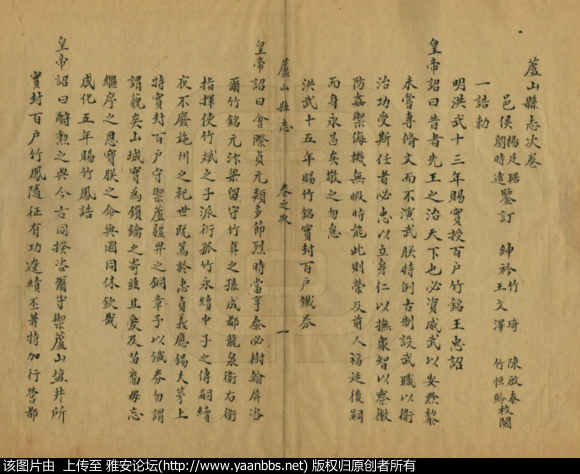 蘆山縣志次卷
邑侯楊廷琚劉時遠鑒訂 紳衿竹琦王文澤 陳啟泰竹恒齡校閱
一誥勅
明洪武十三年賜實授百户竹銘王忠詔
皇帝詔曰昔者先王之治天下也必資威武以安黔黎
未嘗專脩文而不演武朕特倣古制設武職以衞
治功受斯任者必忠以立身仁以撫衆智以察微
防姦禦侮機無暇時能此則榮及前人福延後嗣
而身永昌矣敬之勿怠
洪武十五年賜竹銘實封百户鐵券
蘆山縣志 卷之次 一
皇帝詔曰會際貞元類多節烈時當亨泰必樹翰屏洛
爾竹銘元汴梁留守竹真之孫成都龍泉衞右衞
指揮使竹斌之子派衍孤竹永續申子之傳嗣續
夜不廢施州之祀世既篤於忠貞義應錫夫茅土
特實封百户守禦蘆疆畀之銅章予以鐵券勿謂
謂巍矣山城實為鎖鑰之寄兹且爰及苗裔毋忘
繼序之恩實朕之命與國同休欽哉
成化五年賜竹鳳誥
皇帝詔曰酬勲之典今古同揆咨爾守禦蘆山鹽井所
實封百户竹鳳隨征有功達績丕著特加行營都
该图片由 上传至 雅安论坛(http://www.yaanbbs.net) 版权归原创者所有